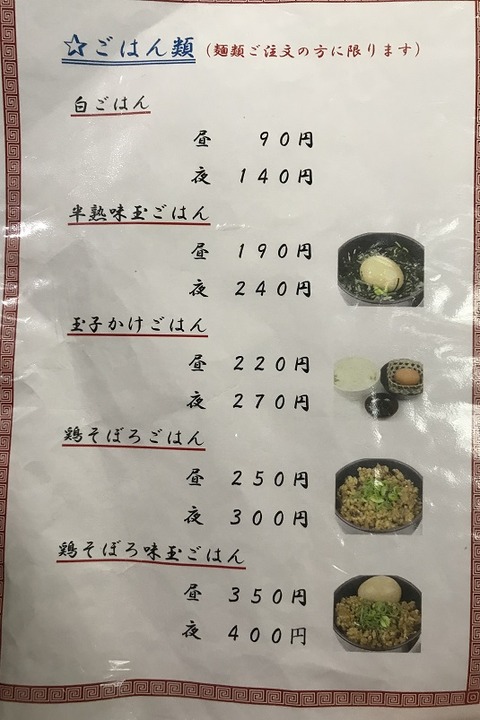 ☆ごはん類（麺類ご注文の方に限ります）
白ごはん
昼 90円
夜 140円
半熟味玉ごはん
昼 190円
夜 240円
玉子かけごはん
昼 220円
夜 270円
鶏そぼろごはん
昼 250円
夜 300円
鶏そぼろ味玉ごはん
昼 350円
夜 400円